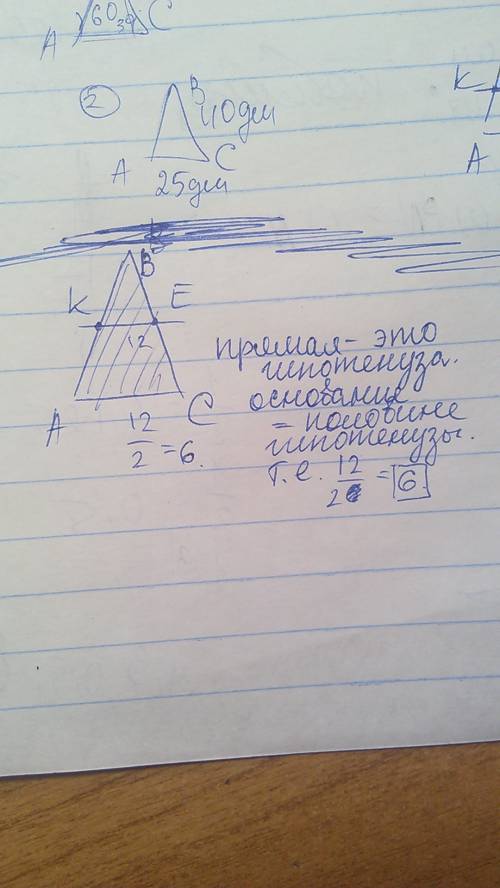 A 60 30 C
2
B
40дм
A C
25дм
B
K E
12
A C
12/2 = 6.
прямая - это
гипотенуза.
основание
= половине
гипотенузы.
т.е. 12/2 = 6
K
A